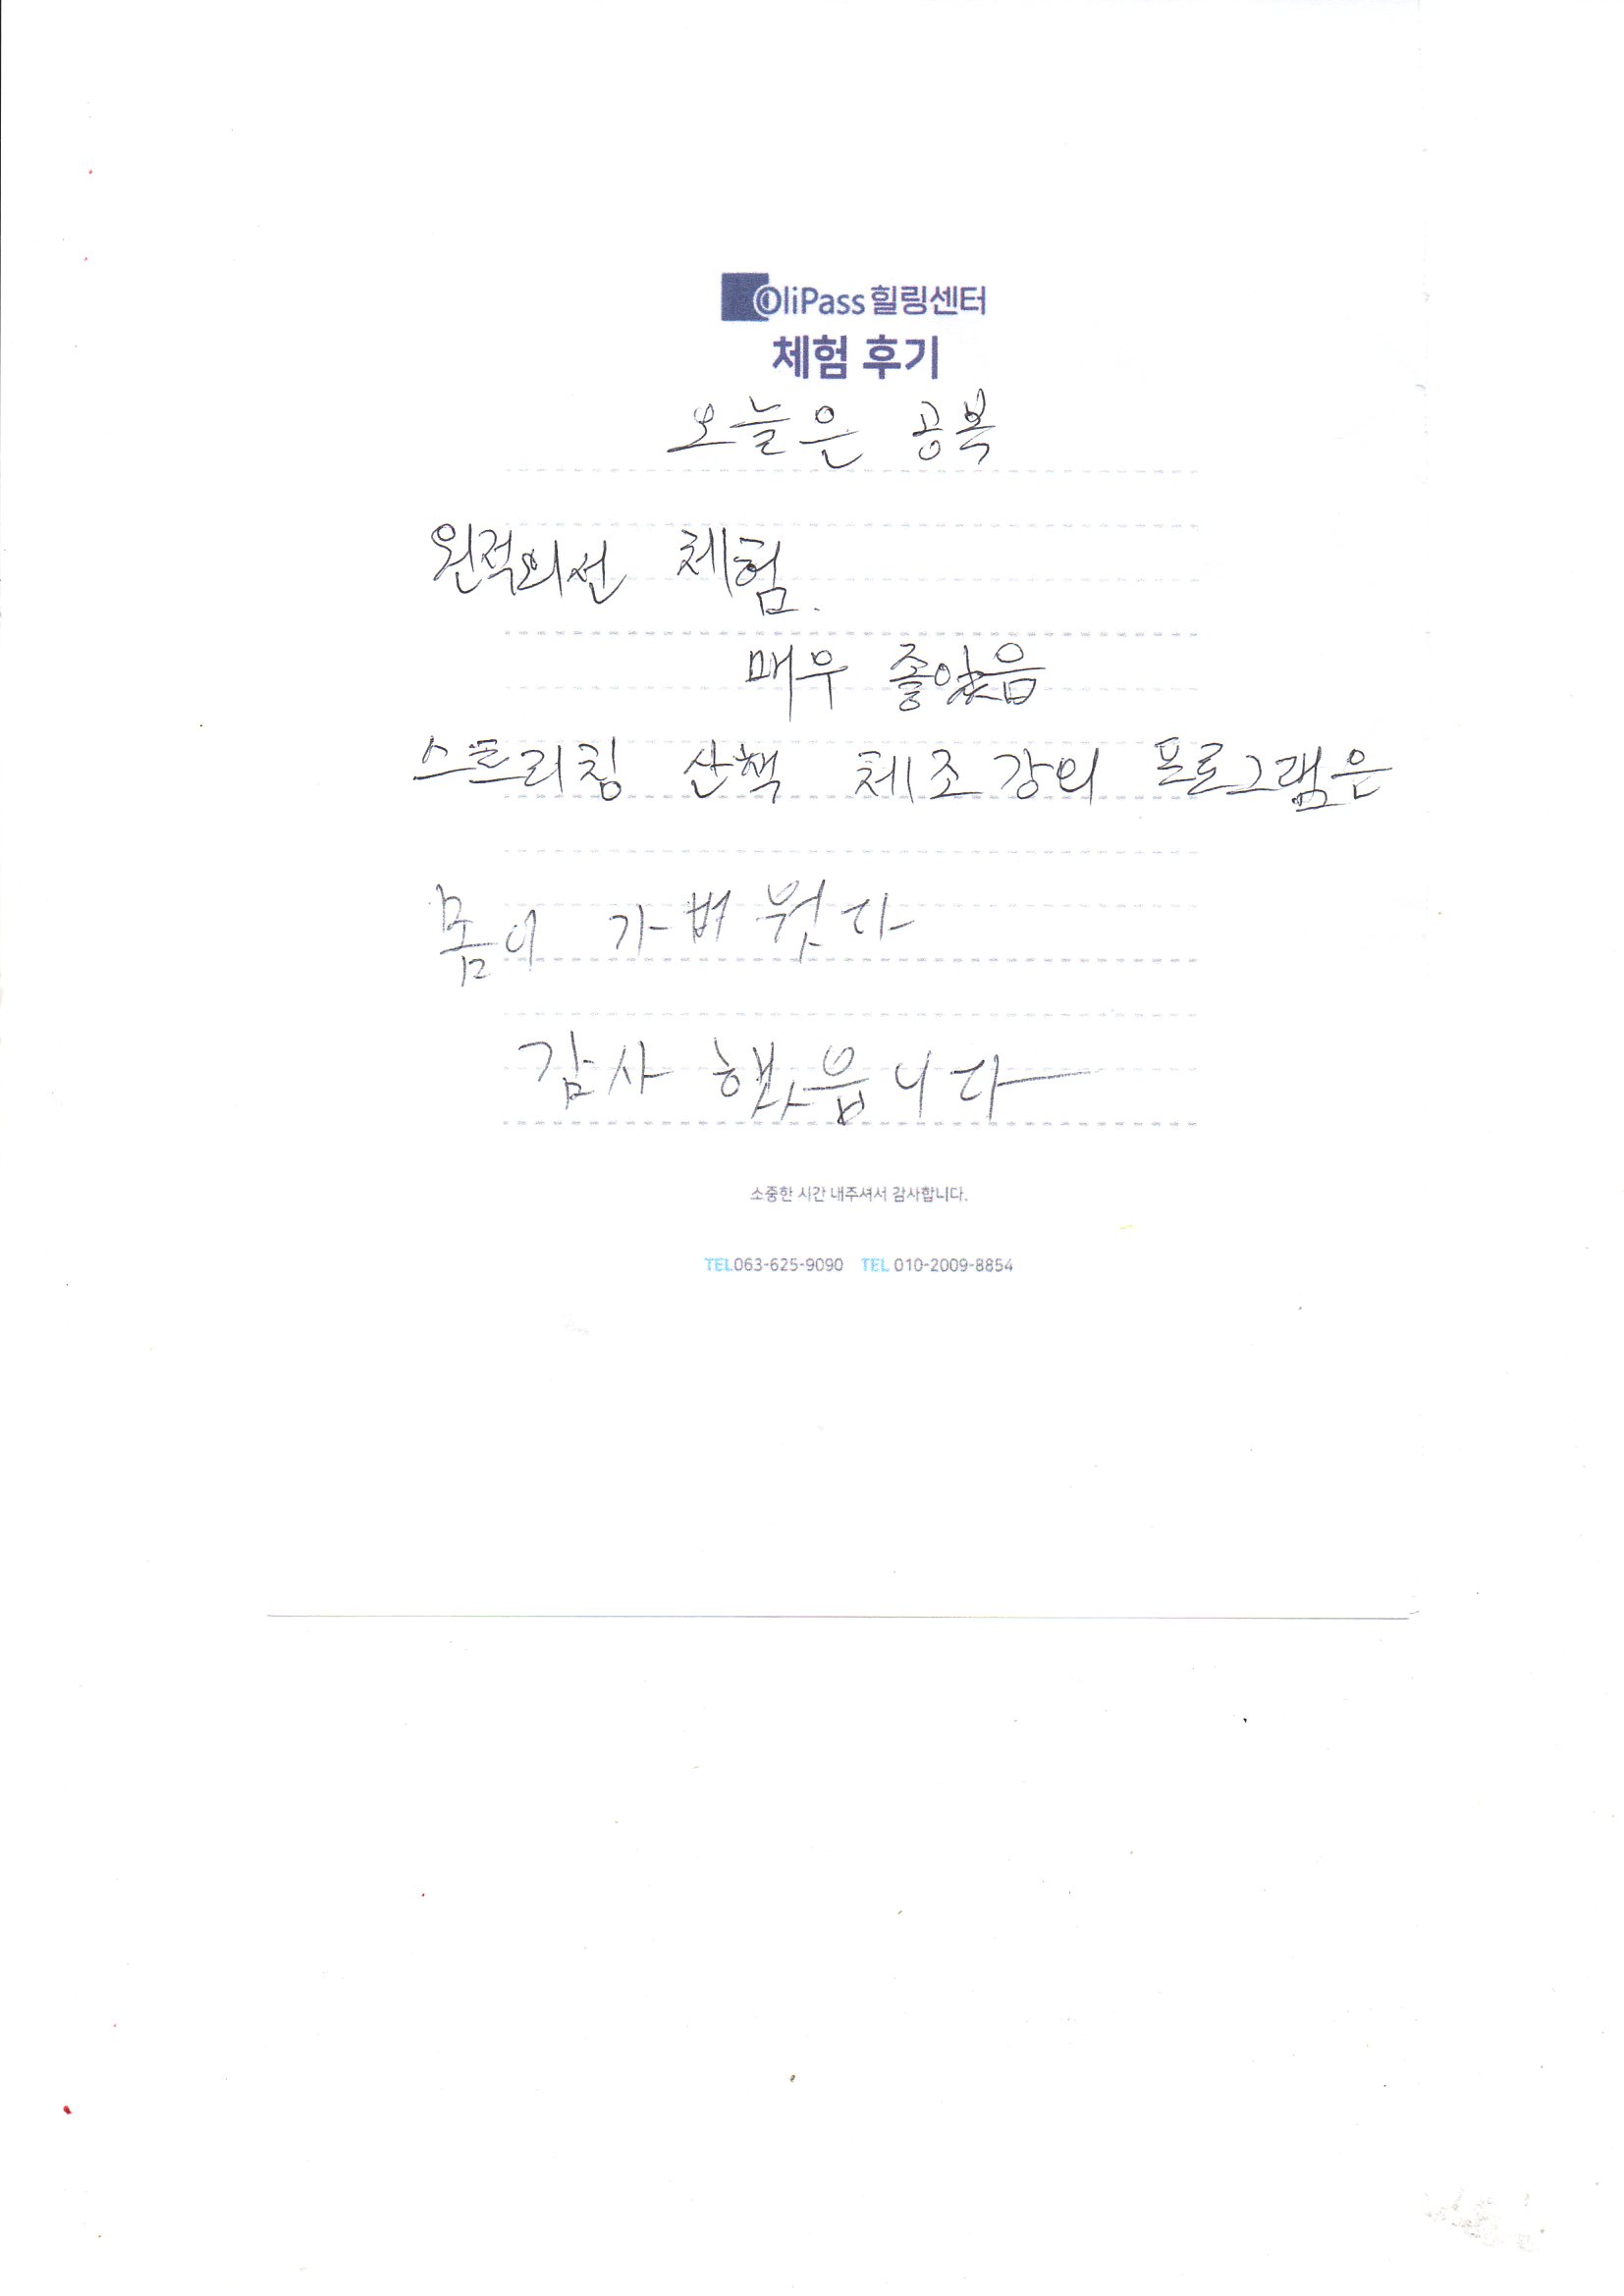 OliPass 힐링센터
체험 후기
오늘은 공복
왼적외선 체험.
매우 좋았음
스트리칭 산책 체조 강의 프로그램은
몸이 가벼웟다
감사 했읍니다
소중한 시간 내주셔서 감사합니다.
TEL 063-625-9090 TEL 010-2009-8854